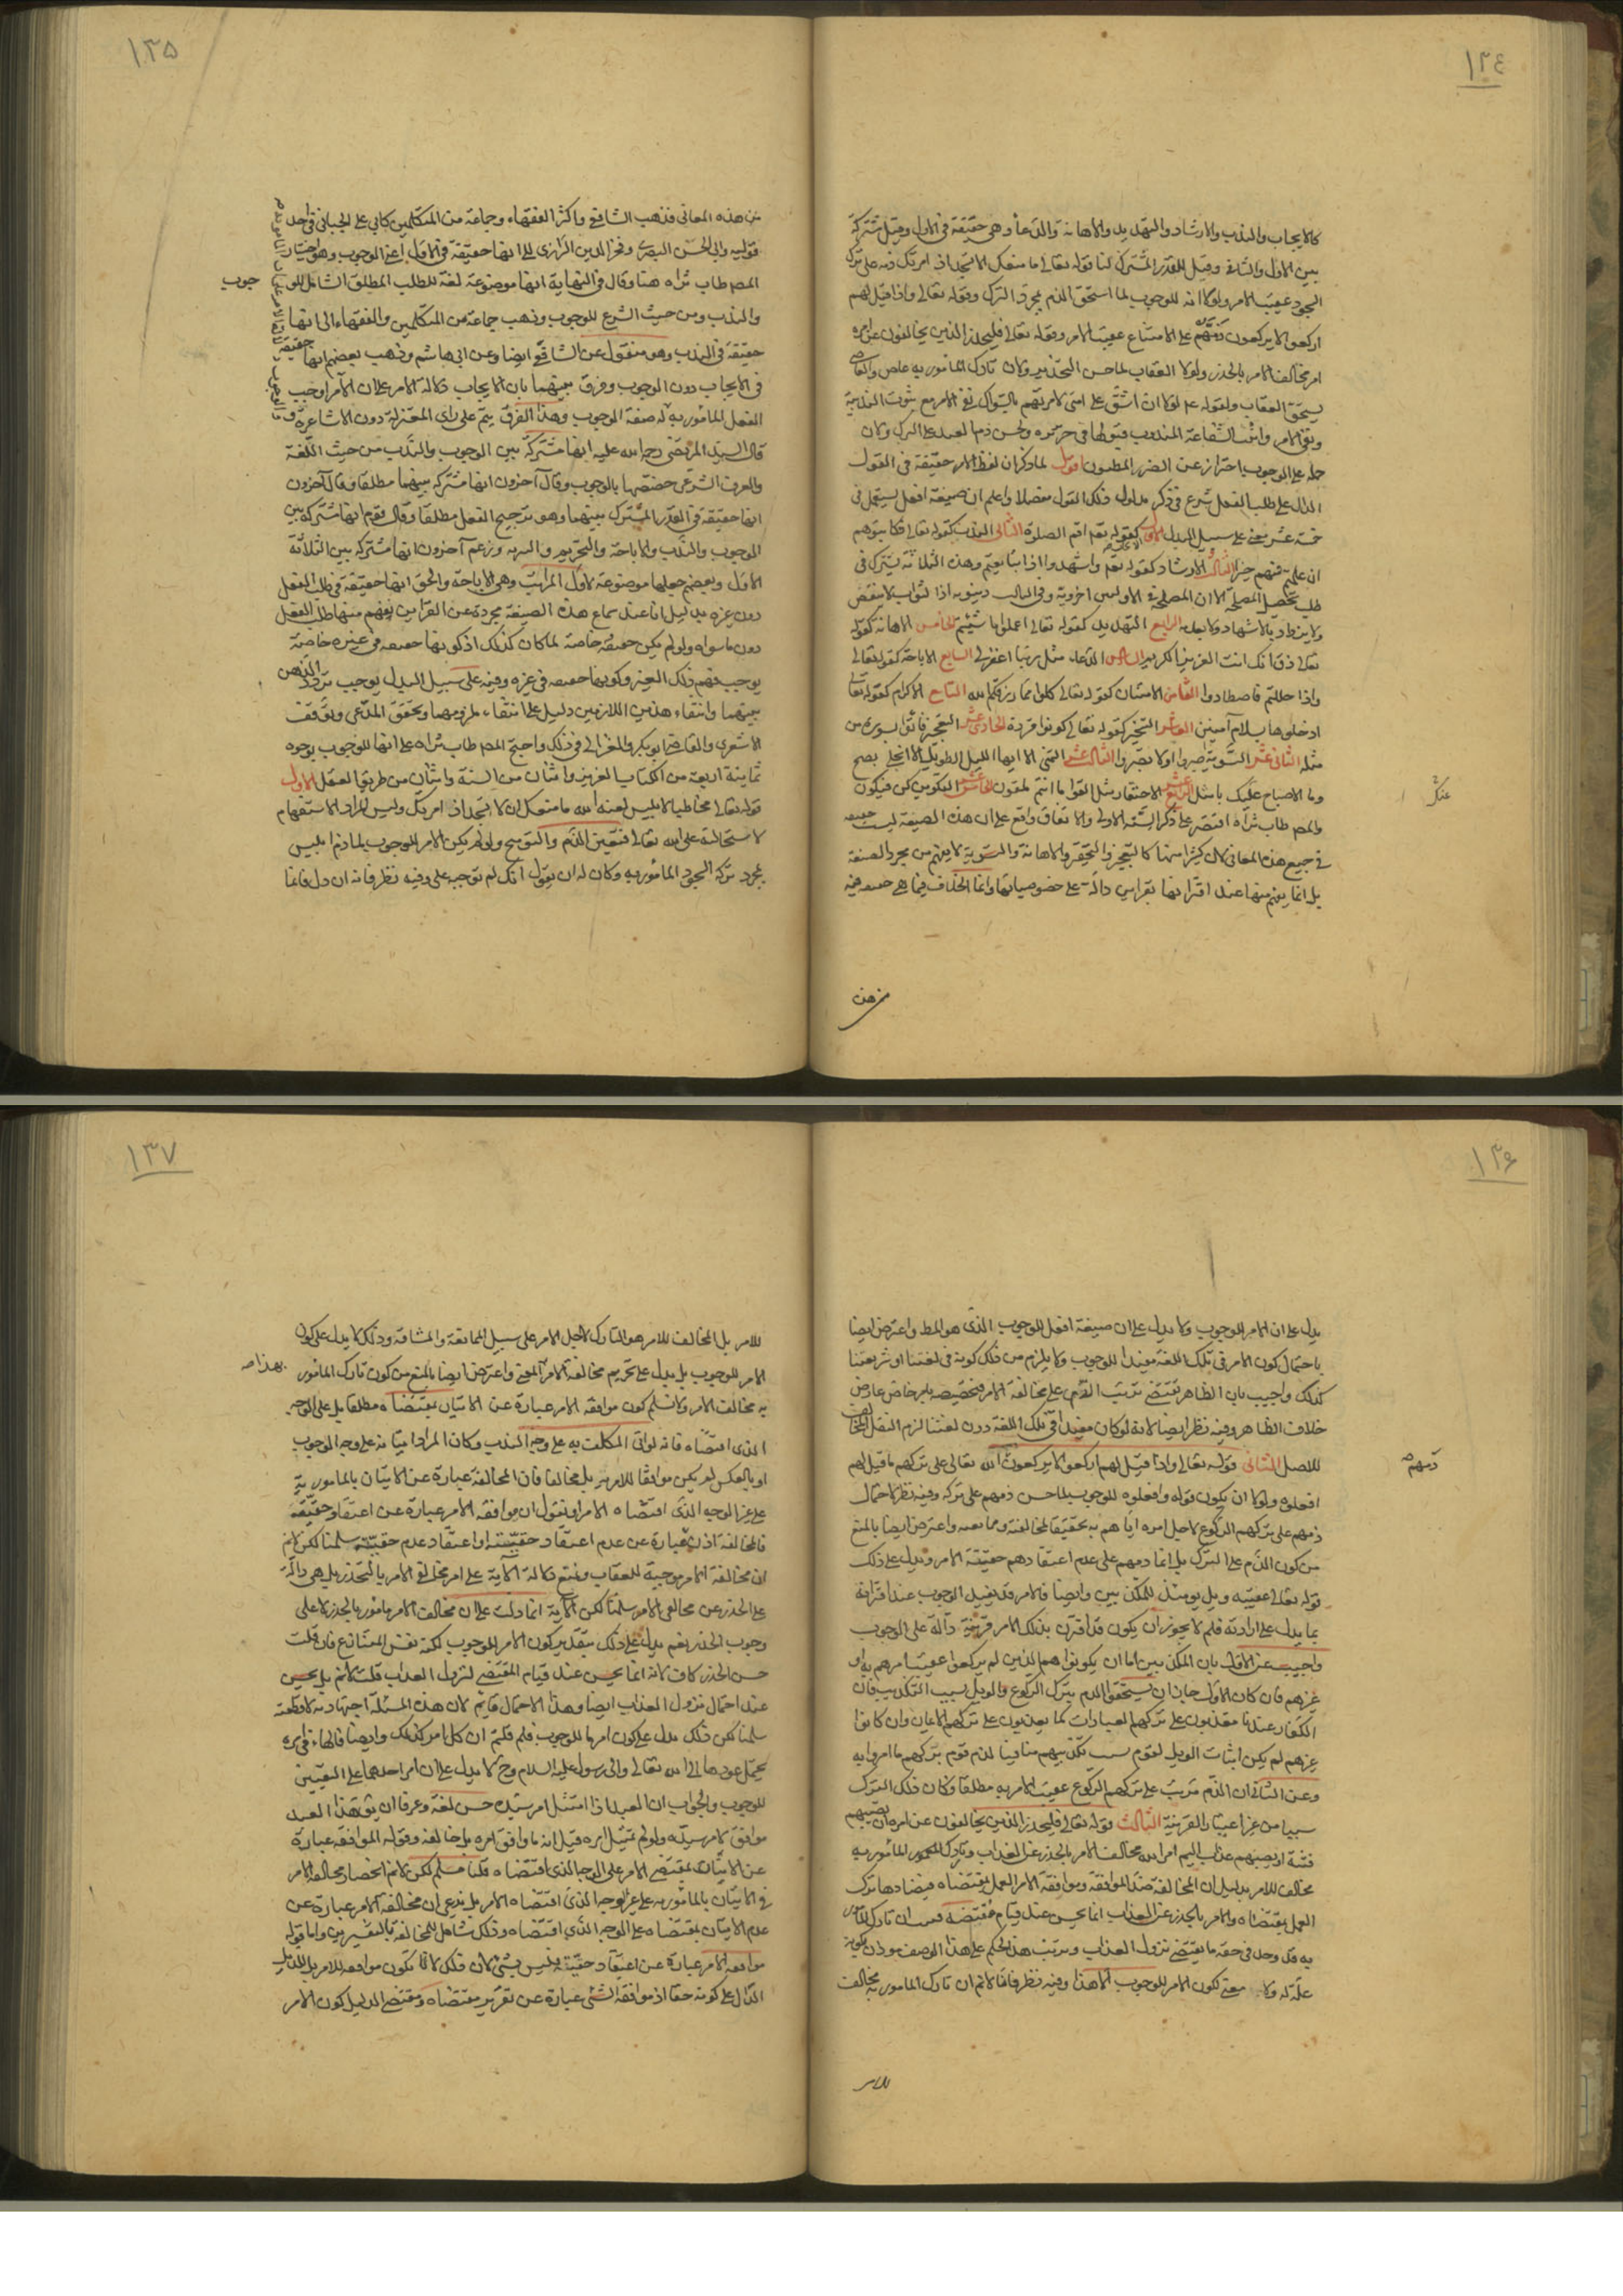 ١٣٤
كالايجاب والندب والارشاد والتهديد والاهانة والدعاء وهي حقيقة في الاول وقيل مشتركة
بين الاول والثاني وقيل للقدر المشترك لنا قوله تعالى ما منعك الا تسجد اذ امرتك ذمه على ترك
السجود عقيب الامر ولولا انه للوجوب لما استحق الذم بمجرد الترك وقوله تعالى واذا قيل لهم
اركعوا لا يركعون ذمهم على الامتناع عقيب الامر وقوله تعالى فليحذر الذين يخالفون عن امره
امر مخالف الامر بالحذر ولولا العقاب لما حسن التحذير ولان تارك المأمور به عاص والعاصي
يستحق العقاب ولقوله ع لولا ان اشق على امتي لامرتهم بالسواك نفى الامر مع ثبوت الندبية
ونفي الامر واثبت الشفاعة المندوب قبولها في خبر بريرة ولحسن ذم العبد على الترك ولان
حمله على الوجوب احتراز عن الضرر المظنون اقول لما ذكر ان لفظ الامر حقيقة في القول
الدال على طلب الفعل شرع في ذكر مدلول ذلك القول مفصلا واعلم ان صيغة افعل يستعمل في
خمسة عشر معنى على سبيل البدل الاول كقوله تعالى اقم الصلوة الثاني الندب كقوله تعالى فكاتبوهم
ان علمتم فيهم خيرا الثالث الارشاد كقوله تعم واشهدوا اذا تبايعتم وهذه الثلاثة يشترك في
طلب تحصيل المصلحة الا ان المصلحة في الاوليين اخروية وفي الثالث دنيوية اذ الثواب لا ينقص
ولا يزداد بالاشهاد ولا بعدمه الرابع التهديد كقوله تعالى اعملوا ما شئتم الخامس الاهانة كقوله
تعالى ذق انك انت العزيز الكريم السادس الدعاء مثل ربنا اغفر لي السابع الاباحة كقوله تعالى
واذا حللتم فاصطادوا الثامن الامتنان كقوله تعالى كلوا مما رزقكم الله التاسع الاكرام كقوله تعالى
ادخلوها بسلام آمنين العاشر التسخير كقوله تعالى كونوا قردة الحادي عشر التعجيز فأتوا بسورة من
مثله الثاني عشر التسوية اصبروا او لا تصبروا الثالث عشر التمني الا ايها الليل الطويل الا انجلي بصبح
وما الاصباح عليك بامثل الرابع عشر الاحتقار مثل القوا ما انتم ملقون الخامس عشر التكوين كن فيكون
والمص طاب ثراه اقتصر على ذكر الستة الاولى والاتفاق واقع على ان هذه الصيغة ليست حقيقة
في جميع هذه المعاني لان كثيرا منها كالتعجيز والتحقير والاهانة والتسوية لا يفهم من مجرد الصيغة
بل انما يفهم منها عند اقترانها بقراين دالة على خصوصياتها وانما الخلاف فيما هي حقيقة فيه
من هذه
١٣٥
من هذه المعاني فذهب الشافعي واكثر الفقهاء وجماعة من المتكلمين كابي علي الجبائي في احد
قوليه وابي الحسن البصري وفخر الدين الرازي الى انها حقيقة في الاول اعني الوجوب وهو اختيار
المص طاب ثراه هنا وقال في النهاية انها موضوعة لغة للطلب المطلق الشامل للوجوب
والندب ومن حيث الشرع للوجوب وذهب جماعة من المتكلمين والفقهاء الى انها
حقيقة في الندب وهو منقول عن الشافعي ايضا وعن ابي هاشم وذهب بعضهم انها حقيقة
في الايجاب دون الوجوب وفرق بينهما بان الايجاب دلالة الامر على ان الآمر اوجب
الفعل المأمور به له صفة الوجوب وهذا الفرق يتم على راى المعتزلة دون الاشاعرة و
قال السيد المرتضى رحمه الله عليه انها مشتركة بين الوجوب والندب من حيث اللغة
والعرف الشرعي خصصها بالوجوب وقال آخرون انها مشتركة بينهما مطلقا وقال آخرون
انها حقيقة في القدر المشترك بينهما وهو ترجيح الفعل مطلقا وقال قوم انها مشتركة بين
الوجوب والندب والاباحة والتحريم والتنزيه وزعم آخرون انها مشتركة بين الثلاثة
الاول وبعضهم جعلها موضوعة لاول المراتب وهي الاباحة والحق انها حقيقة في طلب الفعل
دون غيره بدليل انا عند سماع هذه الصيغة مجردة عن القراين نفهم منها طلب الفعل
دون ما سواه ولو لم يكن حقيقة خاصة لما كان كذلك اذ كونها حقيقة في غيره خاصة
يوجب فهم ذلك الغير وكونها حقيقة في غيره وفيه على سبيل البدل يوجب تردد الذهن
بينهما وانتفاء هذين اللازمين دليل على انتفاء ملزوميهما وتحقق المدعى وتوقف
الاشعري والقاضي ابو بكر والغزالي في ذلك واحتج المص طاب ثراه على انها للوجوب بوجوه
ثمانية اربعة من الكتاب العزيز واثنان من السنة واثنان من طريق العقل الاول
قوله تعالى مخاطبا لابليس لعنه الله ما منعك ان لا تسجد اذ امرتك وليس المراد الاستفهام
لاستحالته على الله تعالى فتعين الذم والتوبيخ ولو لم يكن الامر للوجوب لما ذم ابليس
بمجرد تركه السجود المأمور به وكان له ان يقول انك لم توجبه علي وفيه نظر فانه ان دل فانما
١٣٦
يدل على ان الامر للوجوب ولا يدل على ان صيغة افعل للوجوب الذي هو المط واعترض ايضا
باحتمال كون الامر في تلك اللغة مفيدا للوجوب ولا يلزم من ذلك كونه في لغتنا او شريعتنا
كذلك واجيب بان الظاهر يقتضي ترتيب الذم على مخالفة الامر فتخصيصه بامر خاص عارض
خلاف الظاهر وفيه نظر ايضا لانه لو كان مفيدا في تلك اللغة دون لغتنا لزم النقل المخالف
للاصل الثاني قوله تعالى واذا قيل لهم اركعوا لا يركعون ذمهم الله تعالى على تركهم ما قيل لهم
افعلوه ولولا ان يكون قوله افعلوه للوجوب لما حسن ذمهم على تركه وفيه نظر لاحتمال
ذمهم على تركهم الركوع لاجل امره اياهم به تحقيقا لمخالفته وممانعته واعترض ايضا بالمنع
من كون الذم على الترك بل انما ذمهم على عدم اعتقادهم حقيقة الامر ويدل على ذلك
قوله تعالى عقيبه ويل يومئذ للمكذبين وايضا فالامر قد يفيد الوجوب عند اقترانه
بما يدل على ارادته فلم لا يجوز ان يكون قد اقترن بذلك الامر قرينة دالة على الوجوب
واجيب عن الاول بان المكذبين اما ان يكونوا هم الذين لم يركعوا عقيب امرهم به او
غيرهم فان كان الاول جاز ان يستحق الذم بترك الركوع والويل بسبب التكذيب فان
الكفار عندنا معذبون على تركهم العبادات كما يعذبون على تركهم الايمان وان كانوا
غيرهم لم يكن اثبات الويل لقوم بسبب تكذيبهم منافيا لذم قوم بتركهم ما امروا به
وعن الثاني ان الذم مرتب على تركهم الركوع عقيب الامر به مطلقا وكان ذلك الترك
سببا من غير اعتبار القرينة الثالث قوله تعالى فليحذر الذين يخالفون عن امره ان تصيبهم
فتنة او يصيبهم عذاب اليم امر الله مخالف الامر بالحذر عن العذاب وتارك المأمور به
مخالف للامر بدليل ان المخالفة ضد الموافقة وموافقة الامر العمل بمقتضاه فيضادها ترك
العمل بمقتضاه والامر بالحذر عن العذاب انما يحسن عند قيام مقتضيه فثبت ان تارك المأمور
به قد وجد في حقه ما يقتضي نزول العذاب وترتب هذا الحكم على هذا الوصف مؤذن بكونه
علة له ولا معنى لكون الامر للوجوب الا هذا وفيه نظر فانا لا نم ان تارك المامور به مخالف
للامر
١٣٧
للامر بل المخالف للامر هو التارك لاجل الامر على سبيل الممانعة والمشاقة وذلك لا يدل على كون
الامر للوجوب بل يدل على تحريم مخالفة الامر بهذا المعنى واعترض ايضا بالمنع من كون تارك المأمور
به مخالف الامر ولا نسلم كون موافقة الامر عبارة عن الاتيان بمقتضاه مطلقا بل على الوجه
الذي اقتضاه فانه لو اتى المكلف به على وجه الندب وكان المراد اتيانه على وجه الوجوب
او بالعكس لم يكن موافقا للامر به بل مخالفا فان المخالفة عبارة عن الاتيان بالمامور به
على غير الوجه الذي اقتضاه الامر او نقول ان موافقة الامر عبارة عن اعتقاد حقيته
فالمخالفة اذن عبارة عن عدم اعتقاد حقيته او اعتقاد عدم حقيته سلمنا لكن لا نم
ان مخالفة الامر موجبة للعقاب ونمنع دلالة الآية على امر مخالف الامر بالتحذير بل هي دالة
على الحذر عن مخالف الامر سلمنا لكن الآية انما دلت على ان مخالف الامر مأمور بالحذر لا على
وجوب الحذر نعم يدل على ذلك بتقدير كون الامر للوجوب لكنه نفس المتنازع فان قلت
حسن الحذر كاف لانه انما يحسن عند قيام المقتضي لنزول العذاب قلت لا نم بل يحسن
عند احتمال نزول العذاب ايضا وهذا الاحتمال قايم لان هذه المسئلة اجتهادية لا قطعية
سلمنا لكن ذلك يدل على كون امره للوجوب فلم قلتم ان كل امر كذلك وايضا فالهاء في امره
يحتمل عودها الى الله تعالى والى رسوله عليه السلام وح لا يدل على ان امر احدهما على التعيين
للوجوب والجواب ان العبد اذا امتثل امر سيده حسن لغة وعرفا ان يق هذا العبد
موافق لامر سيده ولو لم يمتثل امره قيل انه ما وافق امره بل خالفه وقوله الموافقة عبارة
عن الاتيان بمقتضى الامر على الوجه الذي اقتضاه قلنا مسلم لكن لا نم انحصار مخالفة الامر
في الاتيان بالمأمور به على غير الوجه الذي اقتضاه الامر بل ندعي ان مخالفة الامر عبارة عن
عدم الاتيان بمقتضاه على الوجه الذي اقتضاه وذلك شامل للمخالفة بالتفسيرين واما قوله
موافقة الامر عبارة عن اعتقاد حقيته فليس بشئ لان ذلك لا يكون موافقة للامر بل للدليل
الدال على كونه حقا اذ موافقة الشئ عبارة عن تقرير مقتضاه ومقتضى الدليل كون الامر